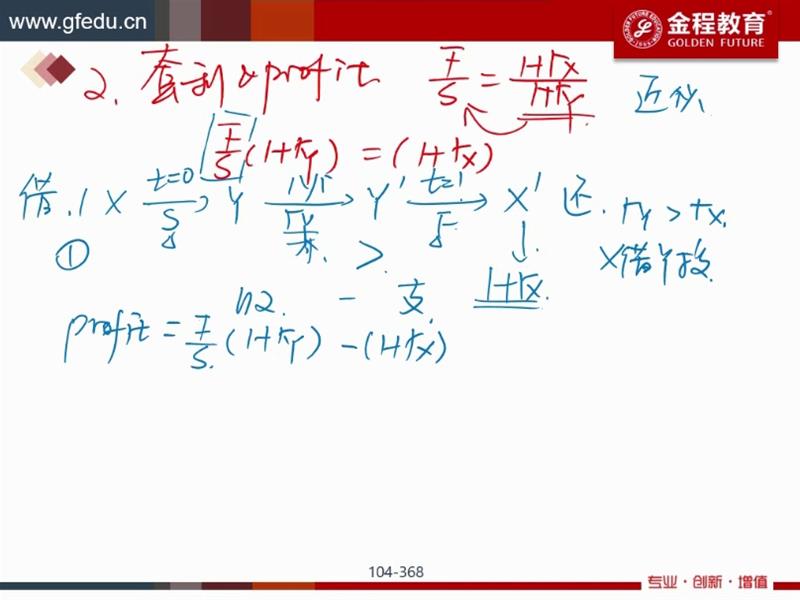 www.gfedu.cn
金程教育
GOLDEN FUTURE
2. 套利 & profit F/S = 1+rx/1+ry 近似
F/S (1+ry) = (1+rx)
借. 1 X t=0 S Y 1年 ry Y' t=1 F X' 还. ry > rx.
① > X借Y投
收 - 支. 1+rx.
profit = F/S. (1+ry) - (1+rx)
104-368
专业·创新·增值